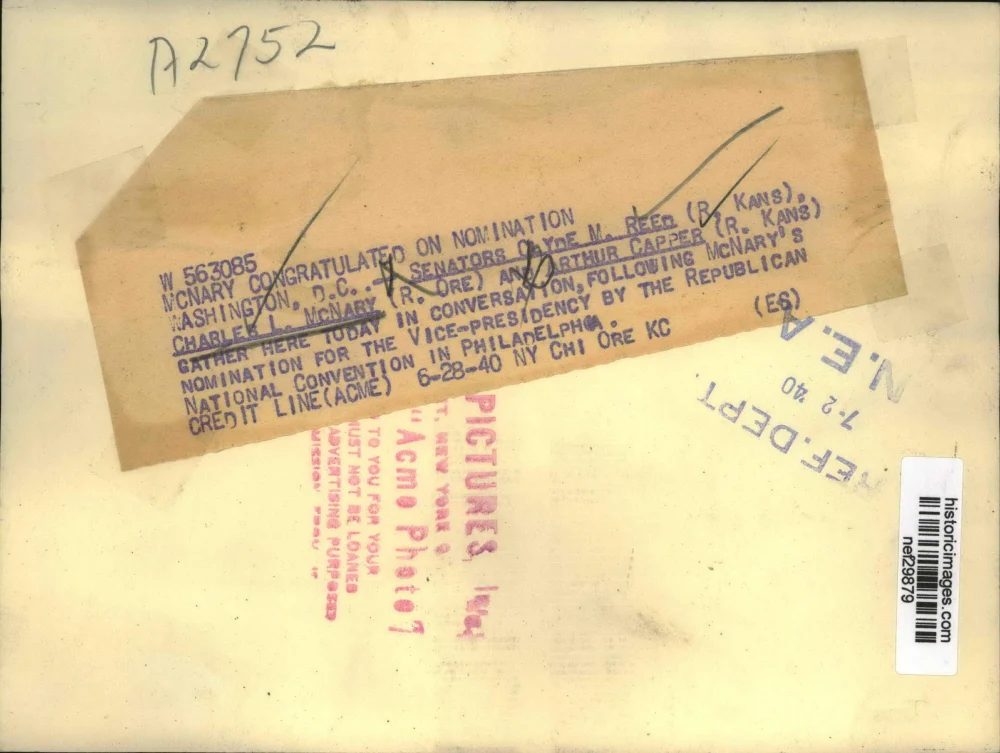 A2752
W 563085
MCNARY CONGRATULATED ON NOMINATION
WASHINGTON, D.C. -- SENATORS CLYDE M. REED (R. KANS),
CHARLES L. MCNARY (R. ORE) AND ARTHUR CAPPER (R. KANS)
GATHER HERE TODAY IN CONVERSATION, FOLLOWING MCNARY'S
NOMINATION FOR THE VICE-PRESIDENCY BY THE REPUBLICAN
NATIONAL CONVENTION IN PHILADELPHIA.
(ES)
CREDIT LINE(ACME) 6-28-40 NY CHI ORE KC
N.E.A
7-2 '40
REF. DEPT.
PICTURES, Inc.
NEW YORK
"Acme Photo"
TO YOU FOR YOUR
MUST NOT BE LOANED
ADVERTISING PURPOSES
historicimages.com
nef29879